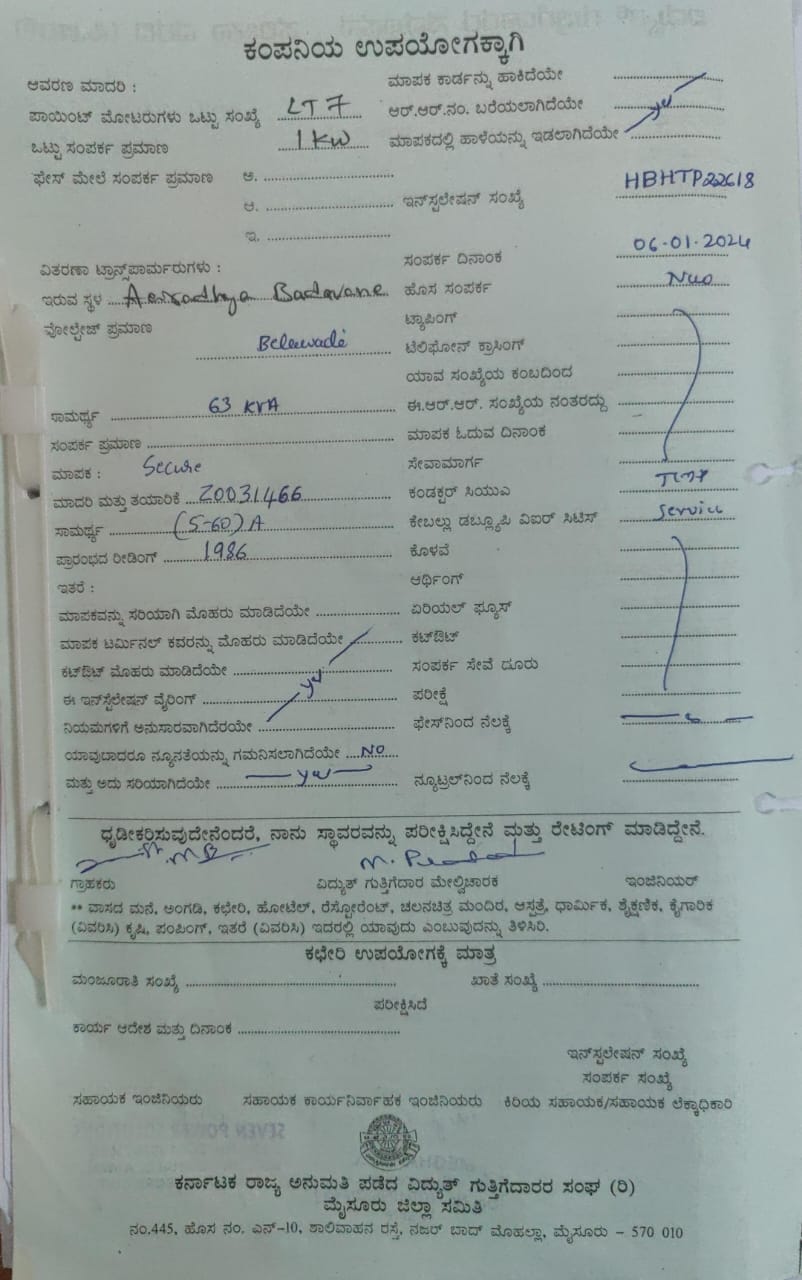 ಕಂಪನಿಯ ಉಪಯೋಗಕ್ಕಾಗಿ
ಆವರಣ ಮಾದರಿ :
ಪಾಯಿಂಟ್ ಮೋಟರುಗಳು ಒಟ್ಟು ಸಂಖ್ಯೆ LT 7
ಒಟ್ಟು ಸಂಪರ್ಕ ಪ್ರಮಾಣ 1 KW
ಫೇಸ್ ಮೇಲೆ ಸಂಪರ್ಕ ಪ್ರಮಾಣ ಅ. ....................
ಆ. ....................
ಇ. ....................
ವಿತರಣಾ ಟ್ರಾನ್ಸ್‌ಪಾರ್ಮರುಗಳು :
ಇರುವ ಸ್ಥಳ Aaradhya Badavane
ವೋಲ್ಟೇಜ್ ಪ್ರಮಾಣ
Belawadi
ಸಾಮರ್ಥ್ಯ 63 KVA
ಸಂಪರ್ಕ ಪ್ರಮಾಣ ....................
ಮಾಪಕ : Secure
ಮಾದರಿ ಮತ್ತು ತಯಾರಿಕೆ Z0031466
ಸಾಮರ್ಥ್ಯ (5-60) A
ಪ್ರಾರಂಭದ ರೀಡಿಂಗ್ 1986
ಇತರೆ :
ಮಾಪಕವನ್ನು ಸರಿಯಾಗಿ ಮೊಹರು ಮಾಡಿದೆಯೇ ....................
ಮಾಪಕ ಟರ್ಮಿನಲ್ ಕವರನ್ನು ಮೊಹರು ಮಾಡಿದೆಯೇ
ಕಟ್‌ಔಟ್ ಮೊಹರು ಮಾಡಿದೆಯೇ ....................
ಈ ಇನ್‌ಸ್ಟಲೇಷನ್ ವೈರಿಂಗ್ yes
ನಿಯಮಗಳಿಗೆ ಅನುಸಾರವಾಗಿದೆರಯೇ ....................
ಯಾವುಬಾದರೂ ನ್ಯೂನತೆಯನ್ನು ಗಮನಿಸಲಾಗಿದೆಯೇ NO
ಮತ್ತು ಅದು ಸರಿಯಾಗಿದೆಯೇ yes
ಮಾಪಕ ಕಾರ್ಡನ್ನು ಹಾಕಿದೆಯೇ ....................
ಆರ್.ಆರ್.ನಂ. ಬರೆಯಲಾಗಿದೆಯೇ yes
ಮಾಪಕದಲ್ಲಿ ಹಾಳೆಯನ್ನು ಇಡಲಾಗಿದೆಯೇ ....................
ಇನ್‌ಸ್ಟಲೇಷನ್ ಸಂಖ್ಯೆ HBHTP22618
ಸಂಪರ್ಕ ದಿನಾಂಕ 06-01-2024
ಹೊಸ ಸಂಪರ್ಕ New
ಟ್ಯಾಪಿಂಗ್ ....................
ಟೆಲಿಫೋನ್ ಕ್ರಾಸಿಂಗ್ ....................
ಯಾವ ಸಂಖ್ಯೆಯ ಕಂಬದಿಂದ ....................
ಈ.ಆರ್.ಆರ್. ಸಂಖ್ಯೆಯ ನಂತರದ್ದು ....................
ಮಾಪಕ ಓದುವ ದಿನಾಂಕ ....................
ಸೇವಾಮಾರ್ಗ ....................
ಕಂಡಕ್ಟರ್ ಸಿಯುಎ
ಕೇಬಲ್ಲು ಡಬ್ಲ್ಯೂಪಿ ವಿಐರ್ ಸಿಟಿಸ್ Service
ಕೊಳವೆ ....................
ಆರ್ಥಿಂಗ್ ....................
ಏರಿಯಲ್ ಫ್ಯೂಸ್ ....................
ಕಟ್‌ಔಟ್ ....................
ಸಂಪರ್ಕ ಸೇವೆ ದೂರು ....................
ಪರೀಕ್ಷೆ ....................
ಫೇಸ್‌ನಿಂದ ನೆಲಕ್ಕೆ ....................
ನ್ಯೂಟ್ರಲ್‌ನಿಂದ ನೆಲಕ್ಕೆ ....................
ಧೃಡೀಕರಿಸುವುದೇನೆಂದರೆ, ನಾನು ಸ್ಥಾವರವನ್ನು ಪರೀಕ್ಷಿಸಿದ್ದೇನೆ ಮತ್ತು ರೇಟಿಂಗ್ ಮಾಡಿದ್ದೇನೆ.
ಗ್ರಾಹಕರು ವಿದ್ಯುತ್ ಗುತ್ತಿಗೆದಾರ ಮೇಲ್ವಿಚಾರಕ ಇಂಜಿನಿಯರ್
** ವಾಸದ ಮನೆ, ಅಂಗಡಿ, ಕಛೇರಿ, ಹೋಟೆಲ್, ರೆಸ್ಟೋರೆಂಟ್, ಚಲನಚಿತ್ರ ಮಂದಿರ, ಆಸ್ಪತ್ರೆ, ಧಾರ್ಮಿಕ, ಶೈಕ್ಷಣಿಕ, ಕೈಗಾರಿಕ
(ವಿವರಿಸಿ) ಕೃಷಿ, ಪಂಪಿಂಗ್, ಇತರೆ (ವಿವರಿಸಿ) ಇದರಲ್ಲಿ ಯಾವುದು ಎಂಬುವುದನ್ನು ತಿಳಿಸಿರಿ.
ಕಛೇರಿ ಉಪಯೋಗಕ್ಕೆ ಮಾತ್ರ
ಮಂಜೂರಾತಿ ಸಂಖ್ಯೆ .................... ಖಾತೆ ಸಂಖ್ಯೆ ....................
ಪರೀಕ್ಷಿಸಿದೆ
ಕಾರ್ಯ ಆದೇಶ ಮತ್ತು ದಿನಾಂಕ ....................
ಇನ್‌ಸ್ಟಲೇಷನ್ ಸಂಖ್ಯೆ
ಸಂಪರ್ಕ ಸಂಖ್ಯೆ
ಸಹಾಯಕ ಇಂಜಿನಿಯರು ಸಹಾಯಕ ಕಾರ್ಯನಿರ್ವಾಹಕ ಇಂಜಿನಿಯರು ಕಿರಿಯ ಸಹಾಯಕ/ಸಹಾಯಕ ಲೆಕ್ಕಾಧಿಕಾರಿ
ಕರ್ನಾಟಕ ರಾಜ್ಯ ಅನುಮತಿ ಪಡೆದ ವಿದ್ಯುತ್ ಗುತ್ತಿಗೆದಾರರ ಸಂಘ (ರಿ)
ಮೈಸೂರು ಜಿಲ್ಲಾ ಸಮಿತಿ
ನಂ.445, ಹೊಸ ನಂ. ಎನ್-10, ಶಾಲಿವಾಹನ ರಸ್ತೆ, ನಜರ್ ಬಾದ್ ಮೊಹಲ್ಲಾ, ಮೈಸೂರು - 570 010